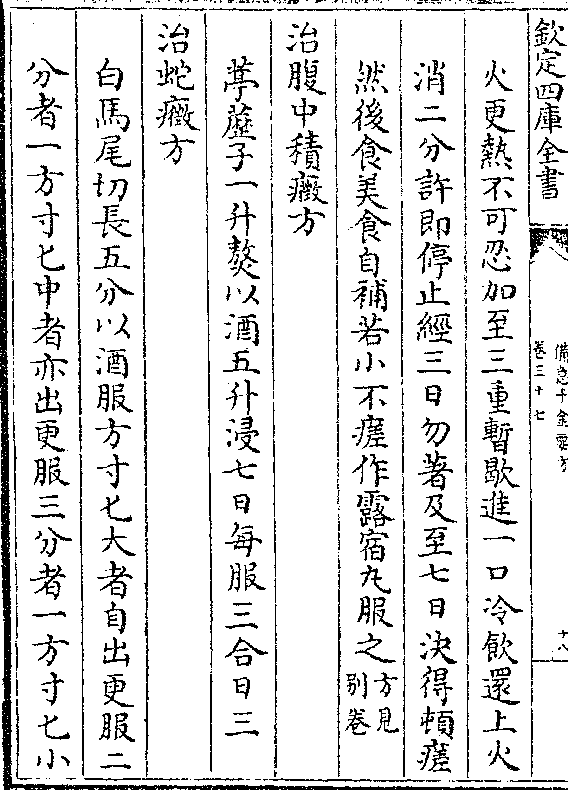 欽定四庫全書
備急千金要方
卷三十七
十八
火更熱不可忍加至三重暫歇進一口冷飲還上火
消二分許即停止經三日勿著及至七日決得頓瘥
然後食美食自補若小不瘥作露宿丸服之方見別卷
治腹中積癥方
葶藶子一升熬以酒五升浸七日每服三合日三
治蛇癥方
白馬尾切長五分以酒服方寸匕大者自出更服二
分者一方寸匕中者亦出更服三分者一方寸匕小